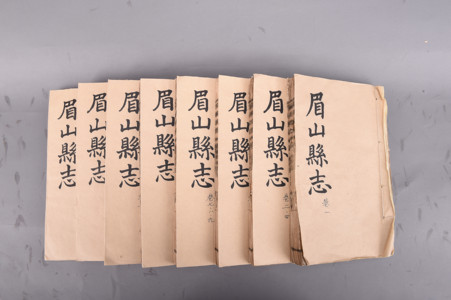 眉山縣志
眉山縣志
眉山縣志
眉山縣志
眉山縣志
眉山縣志
眉山縣志
眉山縣志